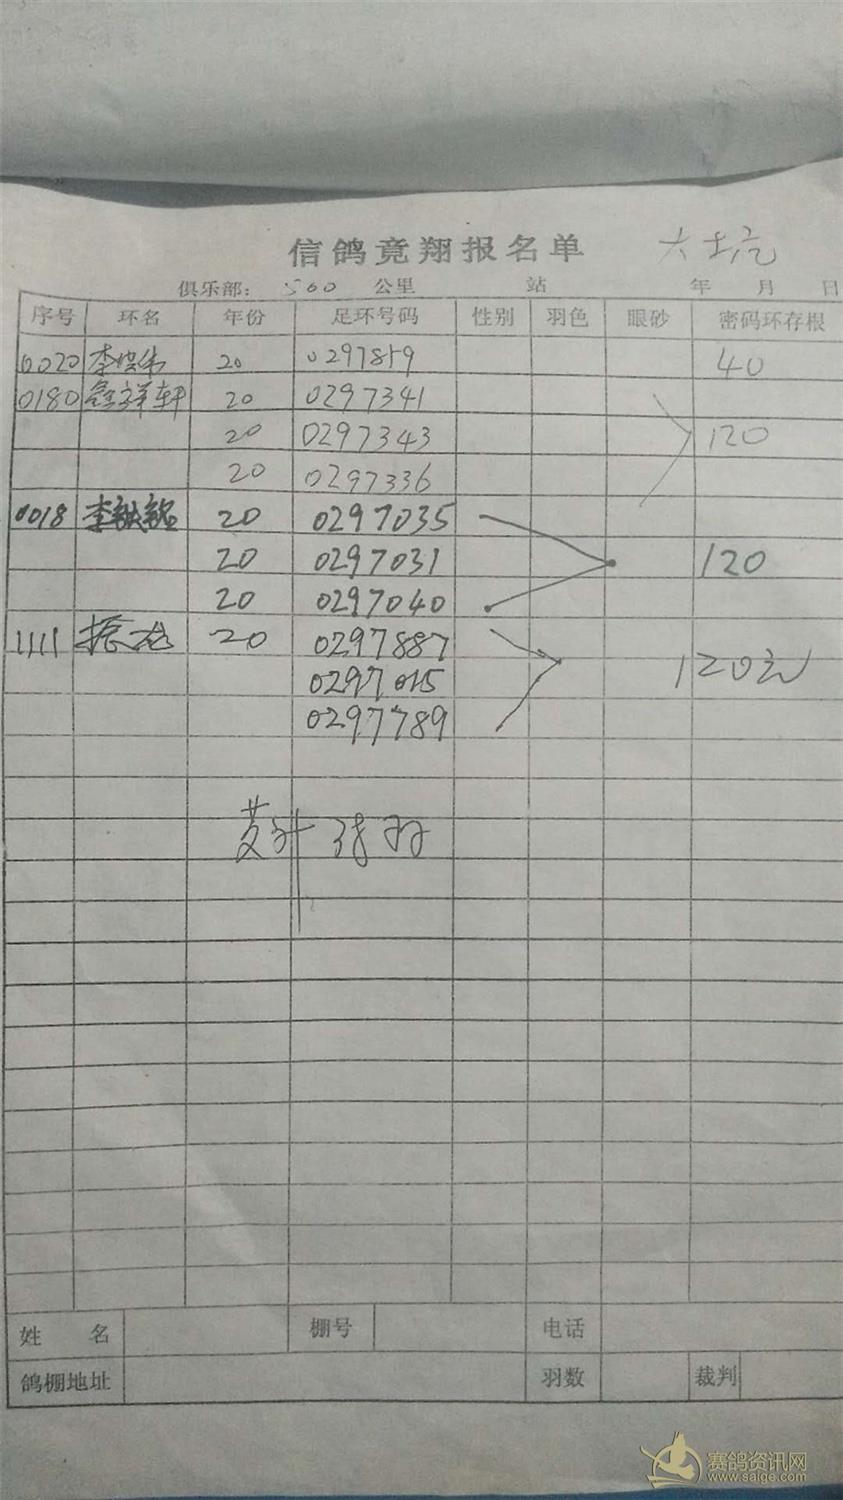 信鸽竟翔报名单 大坑
俱乐部: 500 公里 站 年 月 日
序号 环名 年份 足环号码 性别 羽色 眼砂 密码环存根
0020 李 伟 20 0297859 40
0180 鑫祥轩 20 0297341
20 0297343 120
20 0297336
0018 李铁铭 20 0297035
20 0297031 120
20 0297040
1111 振 20 0297887
0297015 120元
0297789
共计 羽
姓 名 棚号 电话
鸽棚地址 羽数 裁判
赛鸽资讯网
www.saige.com